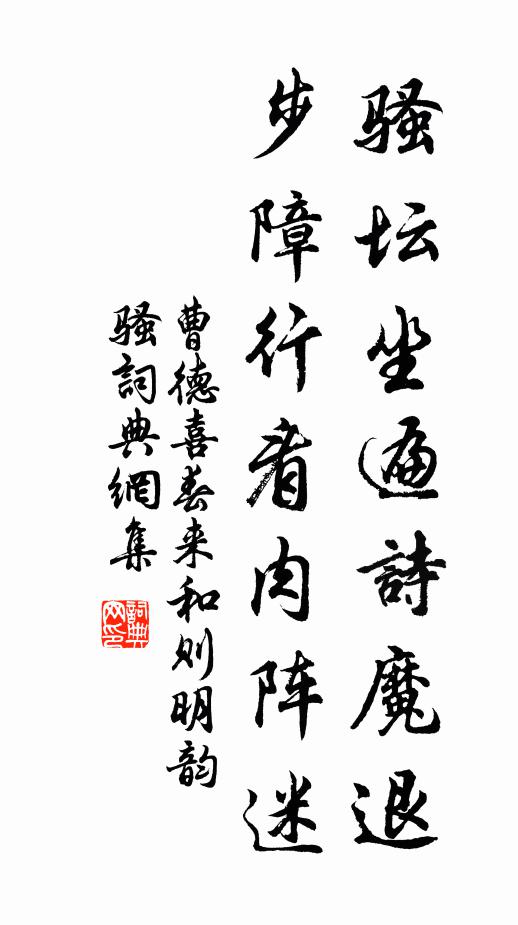 骚坛坐遍詩魔退
步障行看肉阵迷
曹德喜春来和则明韵
骚詞典網集
詞典网印